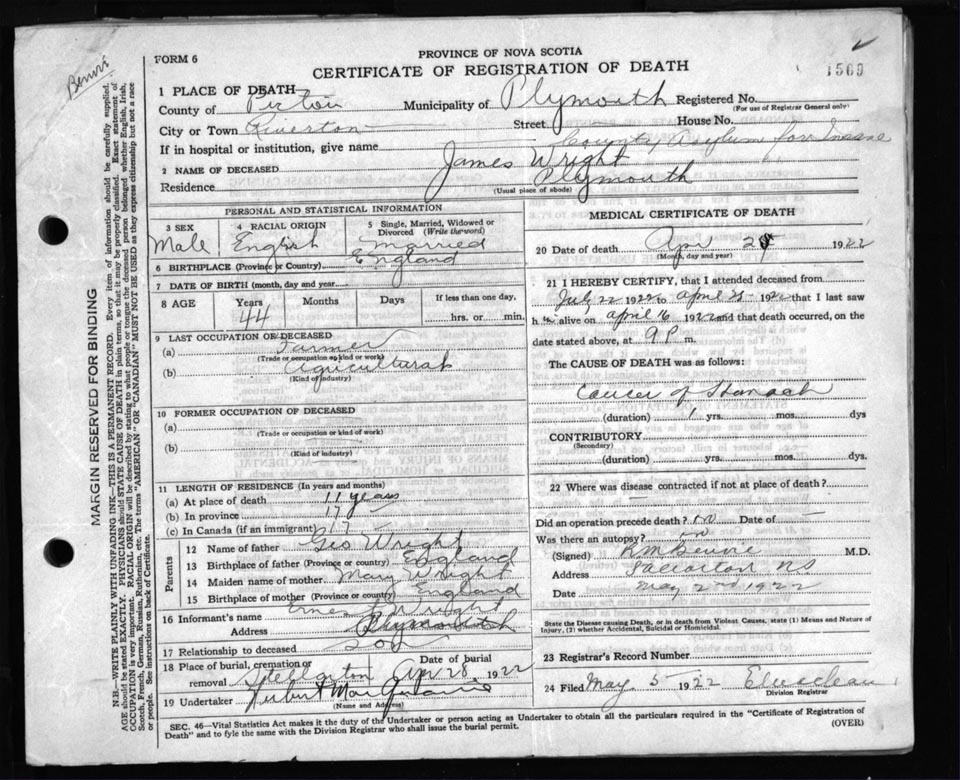 Benvi
FORM 6
PROVINCE OF NOVA SCOTIA
CERTIFICATE OF REGISTRATION OF DEATH
1569
1 PLACE OF DEATH
County of Pictou Municipality of Plymouth Registered No.
(For use of Registrar General only)
City or Town Riverton Street House No.
If in hospital or institution, give name County Asylum for Insane
2 NAME OF DECEASED James Wright
Residence Plymouth
(Usual place of abode)
PERSONAL AND STATISTICAL INFORMATION
3 SEX Male
4 RACIAL ORIGIN English
5 Single, Married, Widowed or Divorced (Write the word) Married
6 BIRTHPLACE (Province or Country) England
7 DATE OF BIRTH (month, day and year)
8 AGE Years 44 Months Days If less than one day, hrs. or min.
9 LAST OCCUPATION OF DECEASED
(a) Farmer
(Trade or occupation or kind of work)
(b) Agricultural
(Kind of industry)
10 FORMER OCCUPATION OF DECEASED
(a)
(Trade or occupation or kind of work)
(b)
(Kind of industry)
11 LENGTH OF RESIDENCE (In years and months)
(a) At place of death 11 years
(b) In province 17 –
(c) In Canada (if an immigrant) 17 –
Parents
12 Name of father Geo Wright
13 Birthplace of father (Province or country) England
14 Maiden name of mother Mary Wright
15 Birthplace of mother (Province or country) England
16 Informant's name Ernest Wright
Address Plymouth
17 Relationship to deceased son
18 Place of burial, cremation or removal Stellarton Date of burial Apr 28, 1922
19 Undertaker
(Name and Address)
MEDICAL CERTIFICATE OF DEATH
20 Date of death Apr 1922
(Month, day and year)
21 I HEREBY CERTIFY, that I attended deceased from
July 22 to April that I last saw
h alive on April 16 1922 and that death occurred, on
date stated above, at 9 P m.
The CAUSE OF DEATH was as follows:
Cancer of Stomach
(duration) 1 yrs. mos. dys
CONTRIBUTORY
(Secondary)
(duration) yrs. mos. dys.
22 Where was disease contracted if not at place of death?
–
Did an operation precede death? no Date of –
Was there an autopsy? no
(Signed) M.D.
Address NS
Date May 2nd 1922
State the Disease causing Death, or in death from Violent Causes, state (1) Means and Nature of
Injury, (2) whether Accidental, Suicidal or Homicidal.
23 Registrar's Record Number
24 Filed May 5 1922
Division Registrar
SEC. 46—Vital Statistics Act makes it the duty of the Undertaker or person acting as Undertaker to obtain all the particulars required in the "Certificate of Registration of
Death" and to fyle the same with the Division Registrar who shall issue the burial permit. (OVER)
MARGIN RESERVED FOR BINDING
N.B.—WRITE PLAINLY WITH UNFADING INK—THIS IS A PERMANENT RECORD. Every item of information should be carefully supplied.
AGE should be stated EXACTLY. PHYSICIANS should STATE CAUSE OF DEATH in plain terms, so that it may be properly classified. Exact statement of
OCCUPATION is very important. RACIAL ORIGIN will be described by stating to what people or tongue the deceased person belonged whether English, Irish,
Scotch, French, German, Russian, Ruthenian, etc. The terms "AMERICAN" or "CANADIAN" MUST NOT BE USED as they express citizenship but not a race
or people. See instructions on back of Certificate.